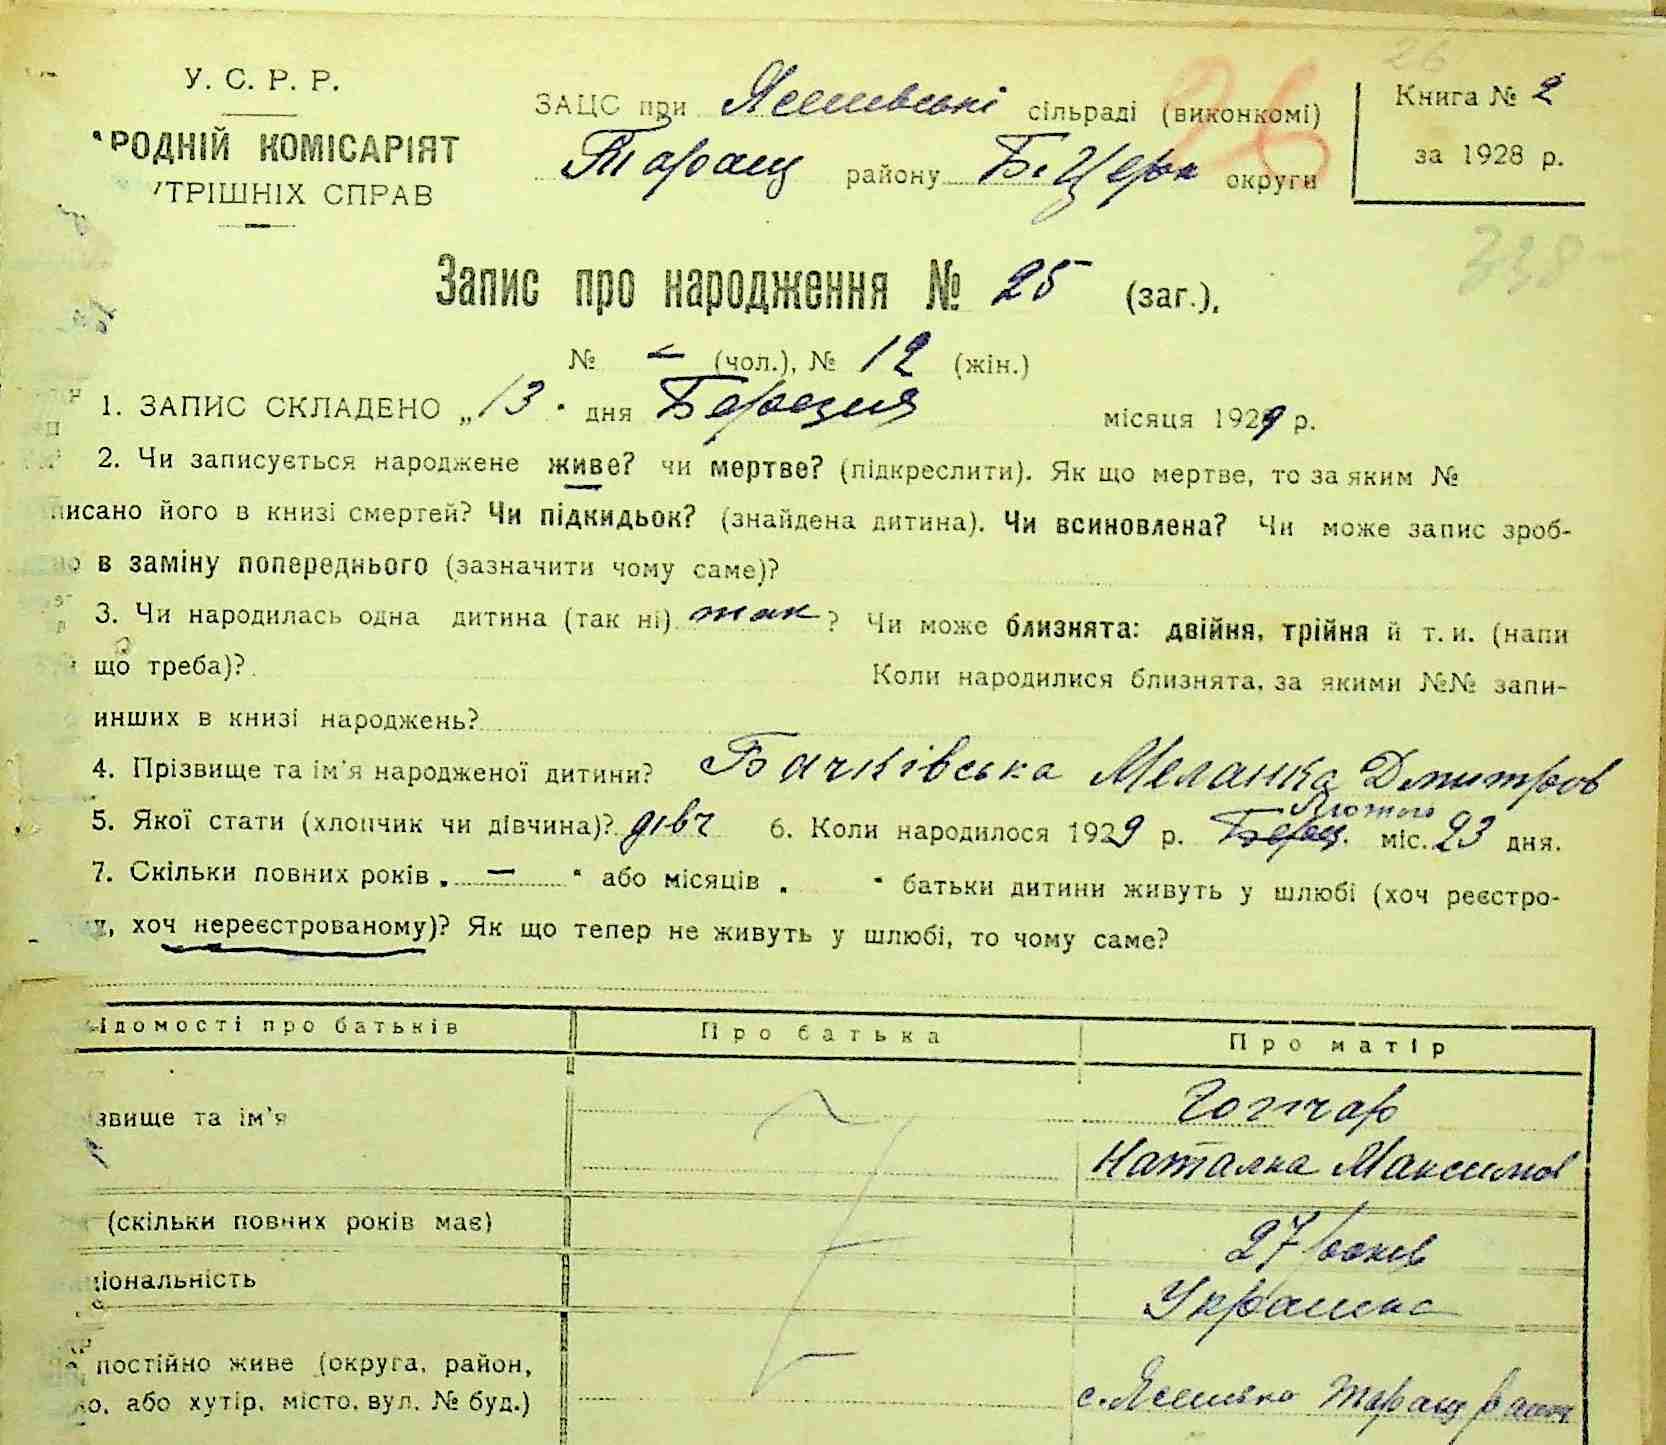 26
У. С. Р. Р.
РОДНІЙ КОМІСАРІЯТ
ТРІШНІХ СПРАВ
ЗАЦС при Ясенівські сільраді (виконкомі)
Таращ району Б. Церк округи
26
Книга № 2
за 1928 р.
338
Запис про народження № 25 (заг.).
№ – (чол.), № 12 (жін.)
1. ЗАПИС СКЛАДЕНО „13" дня Березня місяця 1929 р.
2. Чи записується народжене живе? чи мертве? (підкреслити). Як що мертве, то за яким №
писано його в книзі смертей? Чи підкидьок? (знайдена дитина). Чи всиновлена? Чи може запис зроб-
но в заміну попереднього (зазначити чому саме)?
3. Чи народилась одна дитина (так ні) так? Чи може близнята: двійня, трійня й т. и. (напи
що треба)? Коли народилися близнята, за якими №№ запи-
инших в книзі народжень?
4. Прізвище та ім'я народженої дитини? Бачківська Меланка Дмитров
5. Якої стати (хлопчик чи дівчина)? дівч 6. Коли народилося 1929 р. Берез. Лютого міс. 23 дня.
7. Скільки повних років „ – " або місяців „ " батьки дитини живуть у шлюбі (хоч реєстро-
у, хоч нереєстрованому)? Як що тепер не живуть у шлюбі, то чому саме?
ідомості про батьків Про батька Про матір
звище та ім'я Гончар
Наталка Максимов
(скільки повних років має) 27 років
ціональність Українка
постійно живе (округа, район, с. Ясенівка Таращ район
о, або хутір, місто, вул. № буд.)